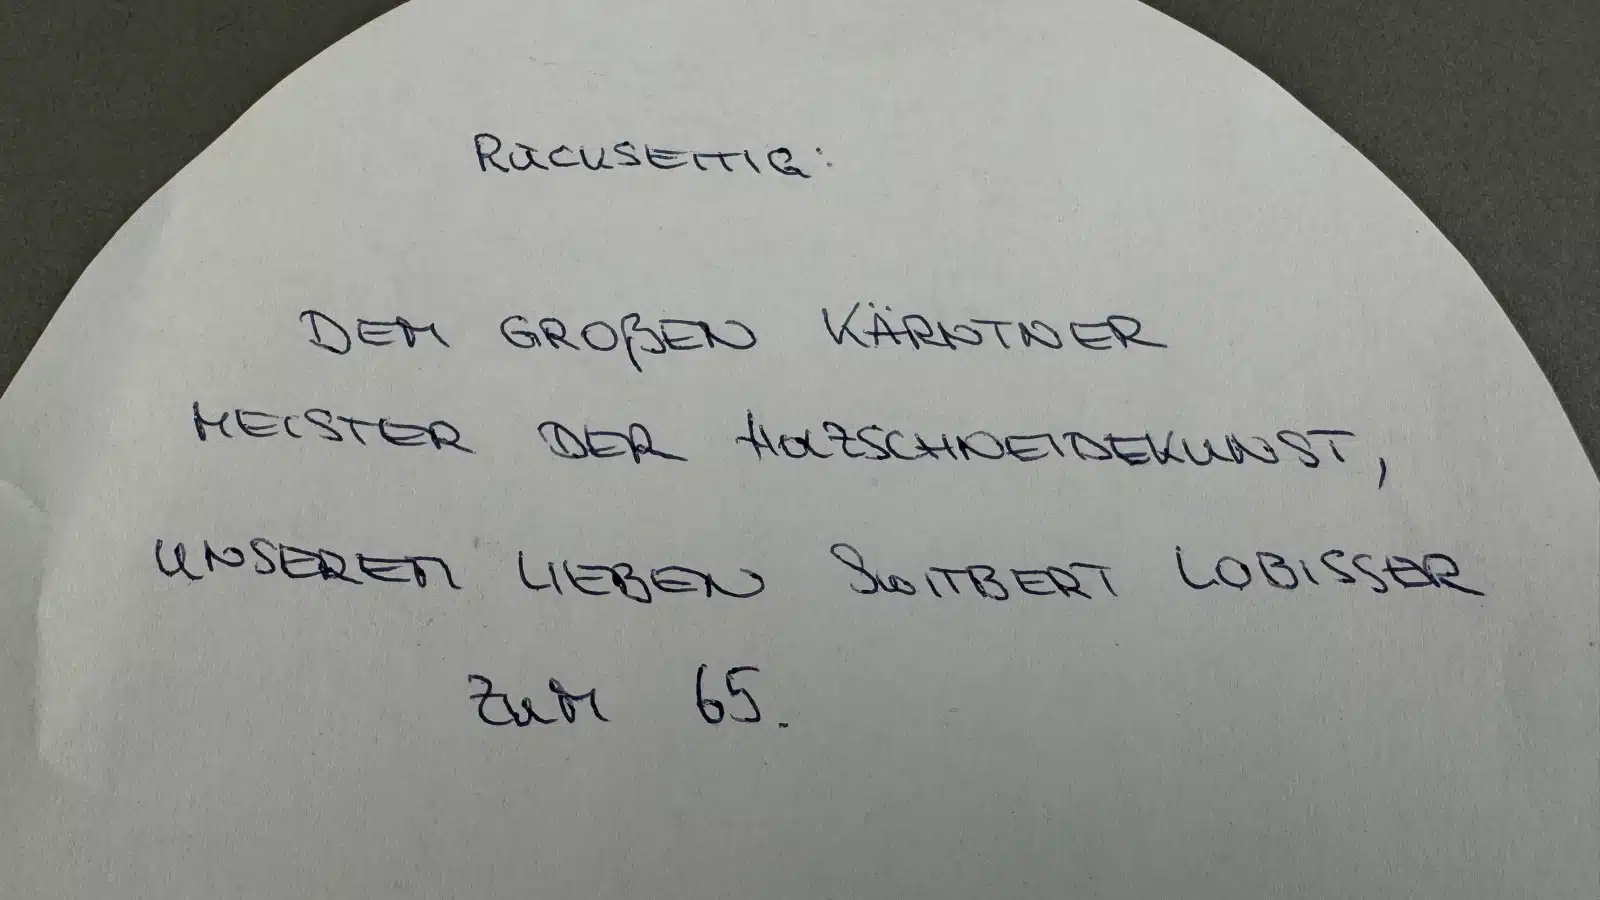 RÜCKSEITIG:
DEM GROßEN KÄRNTNER
MEISTER DER HOLZSCHNEIDEKUNST,
UNSEREM LIEBEN SWITBERT LOBISSER
ZUM 65.